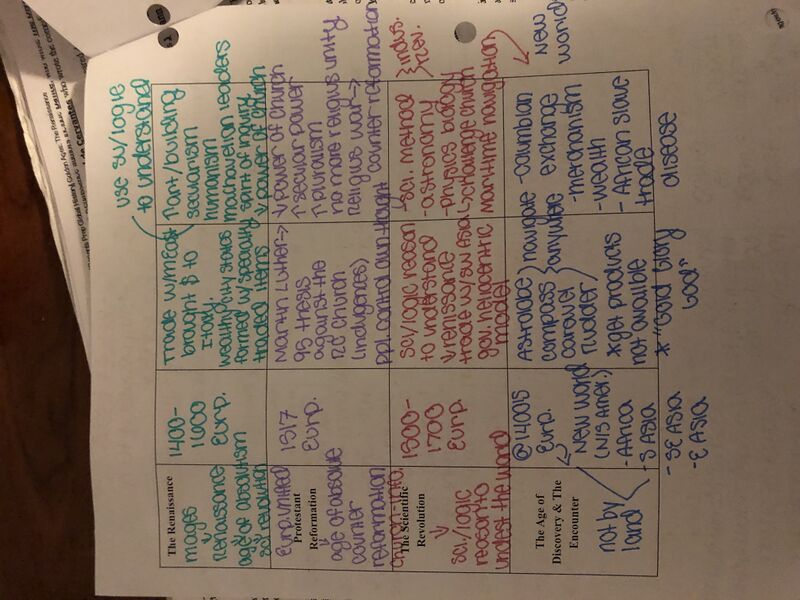 The Renaissance
mages
Renaissance
age of absolutism
sci revolution
1400-
1600
Eurp.
Trade w/mEast
brought $ to
Italy.
wealthy city states
formed w/ specialty
traded items
use sci/logic
to understand
↑art/building
secularism
humanism
machavelian leaders
spirit of inquiry
↓power of church
Eurp.united
Protestant
Reformation
age of absolute
counter
reformation
1517
Eurp.
Martin Luther→
95 thesis
against the
RC church
(indulgences)
ppl.control own thought
↓power of church
↑secular power
↑pluralism
no more religius unity
religius war→
counter reformation
church-info.
The Scientific
Revolution
sci/logic
reason to
underst the world
1500-
1700
Eurp.
Sci/logic reason
to understand
renissance
trade w/SW ASIA
gov. heliocentric
model
-sci. method
-astronomy
-physics biology
↳challenge church
maritime navigation
} indus.
rev.
The Age of
Discovery & The
Encounter
not by
land
@1400s
Eurp.
New World
(N/S Amer.)
-Africa
-S ASIA
-SE ASIA
-E ASIA
Astrolabe
compass
caravel
Rudder
navigate
anywhere
*get products
not avalible
* "Gold Glory
God"
-columbian
exchange
-merchanism
-wealth
-African slave
trade
disease
New
world